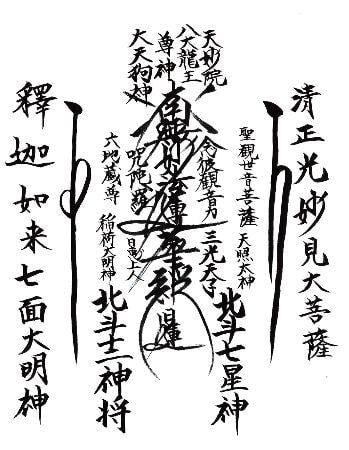 清正光妙見大菩薩
聖観世音菩薩 天照太神
北斗七星神
天妙院
八大龍王
尊神
大天狗神
念彼観音力 三光天子
南無妙法蓮華経 日蓮
陀羅
上人
六地蔵尊 稲荷大明神
北斗十二神将
釋迦如来七面大明神